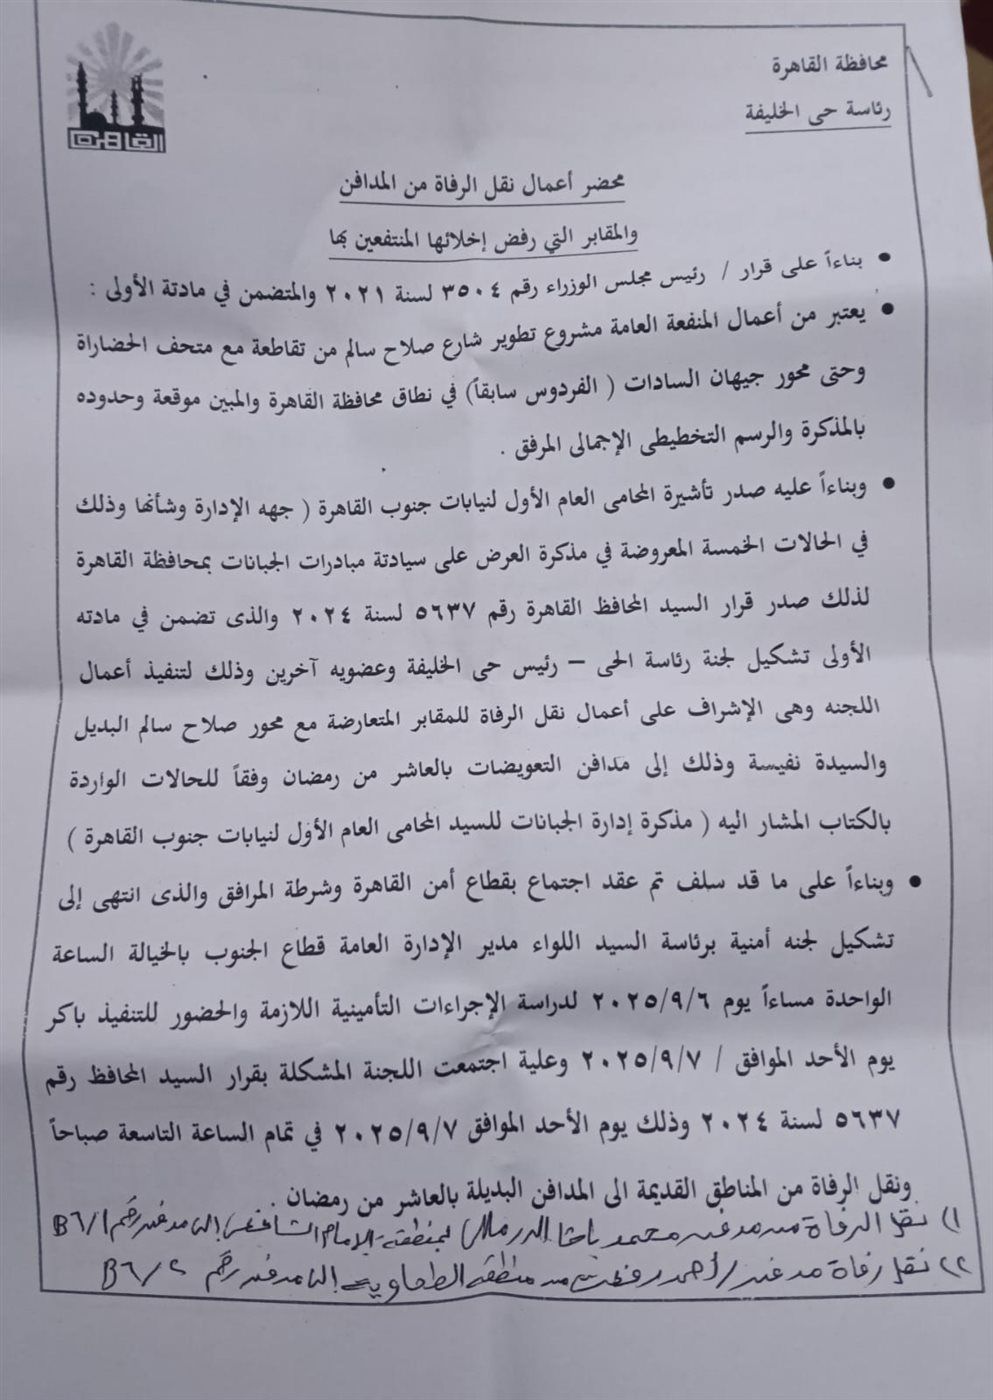 محافظة القاهرة
رئاسة حى الخليفة
القاهرة
محضر أعمال نقل الرفاة من المدافن
والمقابر التي رفض إخلائها المنتفعين بها
• بناءاً على قرار / رئيس مجلس الوزراء رقم ٣٥٠٤ لسنة ٢٠٢١ والمتضمن في مادتة الأولى :
• يعتبر من أعمال المنفعة العامة مشروع تطوير شارع صلاح سالم من تقاطعة مع متحف الحضاراة
وحتى محور جيهان السادات ( الفردوس سابقاً) في نطاق محافظة القاهرة والمبين موقعة وحدوده
بالمذكرة والرسم التخطيطى الإجمالى المرفق .
• وبناءاً عليه صدر تأشيرة المحامى العام الأول لنيابات جنوب القاهرة ( جهه الإدارة وشأنها وذلك
في الحالات الخمسة المعروضة في مذكرة العرض على سيادتة مبادرات الجبانات بمحافظة القاهرة
لذلك صدر قرار السيد المحافظ القاهرة رقم ٥٦٣٧ لسنة ٢٠٢٤ والذى تضمن في مادته
الأولى تشكيل لجنة رئاسة الحى – رئيس حى الخليفة وعضويه آخرين وذلك لتنفيذ أعمال
اللجنه وهى الإشراف على أعمال نقل الرفاة للمقابر المتعارضة مع محور صلاح سالم البديل
والسيدة نفيسة وذلك إلى مدافن التعويضات بالعاشر من رمضان وفقاً للحالات الواردة
بالكتاب المشار اليه ( مذكرة إدارة الجبانات للسيد المحامى العام الأول لنيابات جنوب القاهرة )
• وبناءاً على ما قد سلف تم عقد اجتماع بقطاع أمن القاهرة وشرطة المرافق والذى انتهى إلى
تشكيل لجنه أمنية برئاسة السيد اللواء مدير الإدارة العامة قطاع الجنوب بالخيالة الساعة
الواحدة مساءاً يوم ٢٠٢٥/٩/٦ لدراسة الإجراءات التأمينية اللازمة والحضور للتنفيذ باكر
يوم الأحد الموافق / ٢٠٢٥/٩/٧ وعلية اجتمعت اللجنة المشكلة بقرار السيد المحافظ رقم
٥٦٣٧ لسنة ٢٠٢٤ وذلك يوم الأحد الموافق ٢٠٢٥/٩/٧ في تمام الساعة التاسعة صباحاً
ونقل الرفاة من المناطق القديمة الى المدافن البديلة بالعاشر من رمضان .
١) نقل الرفاة من مدفن محمد باشا الدرمللى بمنطقة الإمام الشافعى إلى مدفن رقم ١/B٦
٢) نقل رفاة مدفن / أحمد رفعت من منطقه الطحاوية إلى مدفن رقم ٢/B٦